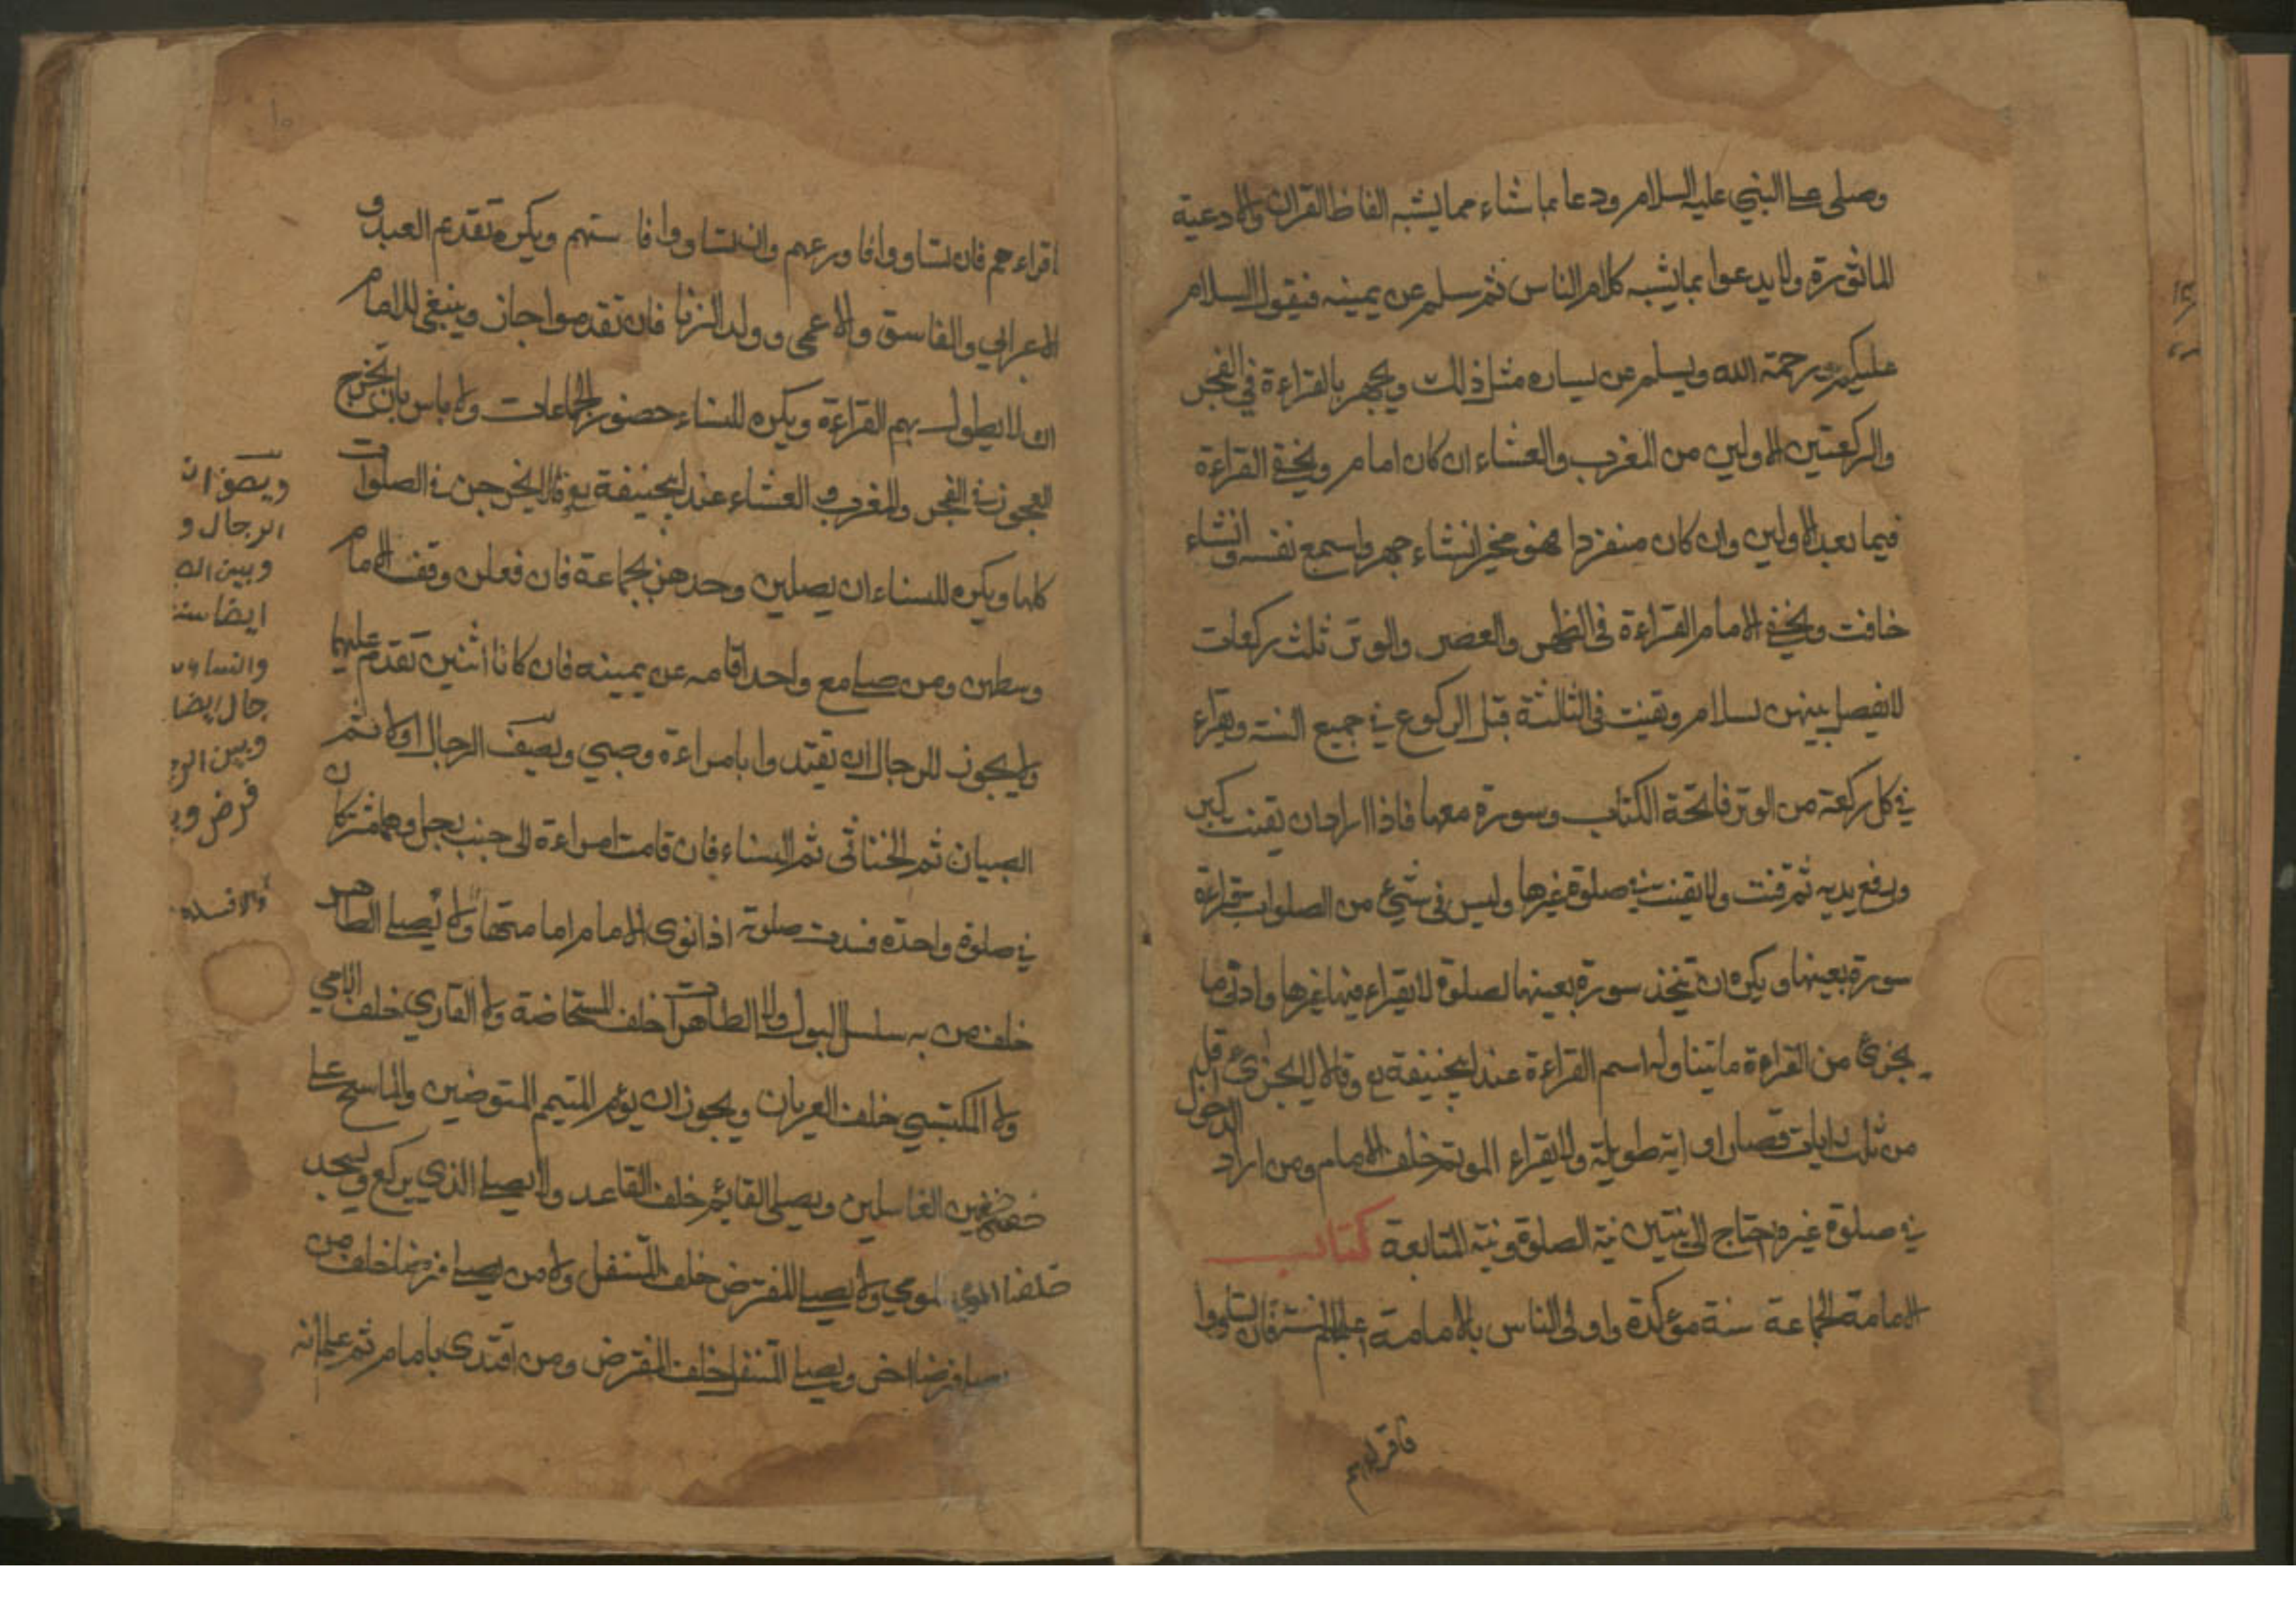 وصلى على النبي عليه السلام ودعا بما شاء مما يشبه الفاظ القران والادعية
الماثورة ولا يدعوا بما يشبه كلام الناس ثم سلم عن يمينه فيقول السلام
عليكم ورحمة الله ويسلم عن يساره مثل ذلك ويجهر بالقراءة في الفجر
والركعتين الاولين من المغرب والعشاء ان كان امام ويخفي القراءة
فيما بعد الاولين وان كان منفردا فهو مخير انشاء جهر واسمع نفسه وانشاء
خافت ويخفي الامام القراءة في الظهر والعصر والوتر ثلث ركعات
لا يفصل بينهن بسلام ويقنت في الثالثة قبل الركوع في جميع السنة ويقراء
في كل ركعة من الوتر فاتحة الكتاب وسورة معها فاذا اراد ان يقنت كبر
ورفع يديه ثم قنت ولا يقنت في صلوة غيرها وليس في شيء من الصلوات قراءة
سورة بعينها ويكره ان يتخذ سورة بعينها لصلوة لا يقراء فيها غيرها وادنى ما
يجزئ من القراءة ما يتناوله اسم القراءة عند ابيحنيفة رح وقالا لا يجزئ اقل
من ثلث ايات قصار او اية طويلة ولا يقراء الموتم خلف الامام ومن اراد الدخول
في صلوة غيره احتاج الى نيتين نية الصلوة ونية المتابعة كتاب
الامامة الجماعة سنة مؤكدة واولى الناس بالامامة اعلمهم بالسنة فان تساووا
فاقراهم
اقراءهم فان تساووا فاورعهم وان تساووا فا ستهم ويكره تقديم العبد و
الاعرابي والفاسق والاعمى وولد الزنا فان تقدموا جاز وينبغي للامام
ان لا يطول بهم القراءة ويكره للنساء حضور الجماعات ولا باس بان يخرج
العجوز في الفجر والمغرب والعشاء عند ابيحنيفة رح وقالا يخرجن في الصلوات
كلها ويكره للنساء ان يصلين وحدهن بجماعة فان فعلن وقف الامام
وسطهن ومن صلى مع واحد اقامه عن يمينه فان كانا اثنين تقدم عليهما
ولا يجوز للرجال ان يقتدوا بامراءة وصبي ويصف الرجال اولا ثم
الصبيان ثم الخناثى ثم النساء فان قامت امراءة الى جنب رجل وهما مشتركان
في صلوة واحدة فسدت صلوته اذا نوى الامام امامتها ولا يصلي الطاهر
خلف من به سلسل البول ولا الطاهرات خلف المستحاضة ولا القاري خلف الامي
ولا المكتسي خلف العريان ويجوز ان يؤم المتيمم المتوضين والماسح على
خفين الغاسلين ويصلي القائم خلف القاعد ولا يصلي الذي يركع ويسجد
خلف المومي ولا يصلي المفترض خلف المتنفل ولا من يصلي فرضا خلف من
يصلي فرضا اخر ويصلي المتنفل خلف المفترض ومن اقتدى بامام ثم علم انه
الرجال و
ايضا
جال ايضا
فرض